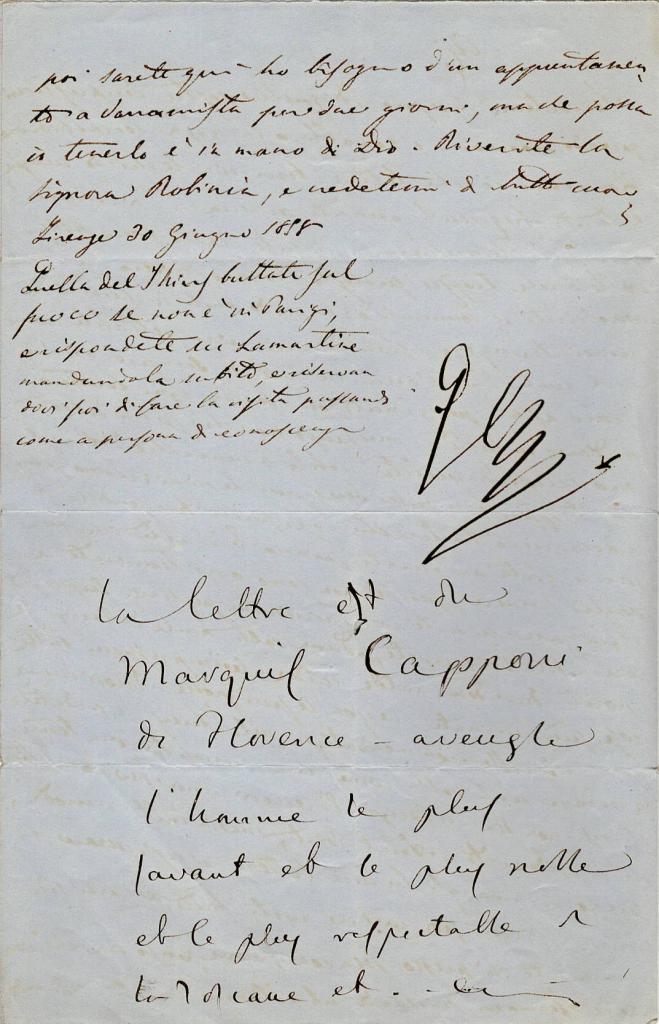 poi sarete qui ho bisogno d'un appuntamen-
to a Varramista per due giorni, ma che possa
io tenerlo è in mano di Dio. Riverite la
Signora Robinia, e credetemi di tutto cuore
Firenze 30 Giugno 1858
Quella del Thiers buttate sul
fuoco se non è in Parigi,
e rispondete su Lamartine
mandandola subito, e riservan
dovi poi di fare la visita passando
come a persona di conoscenza
la lettre est du
Marquis Capponi
de Florence – aveugle
l'homme le plus
savant et le plus noble
et le plus respectable
la Toscane et